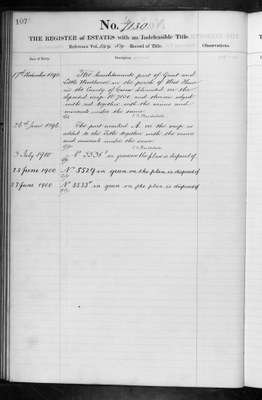 107
No. 7150
THE REGISTER of ESTATES with an Indefeasible Title.
Reference Vol. Folio Record of Title.
Observations.
Date of Entry.
Description
The hereditaments part of Great and
Little Henthorne in the parish of West Ham
in the County of Essex delineated on the
deposited map No and thereon edged
with red together with the mines and
minerals under the same
26th June 1896
The part marked A on the map is
added to the Title together with the mines
and minerals under the same
3 July 1900
No 5535 in green on the plan is disposed of
25 June 1900
No 5529 in green on the plan is disposed of
27 June 1900
No 5533 in green on the plan is disposed of